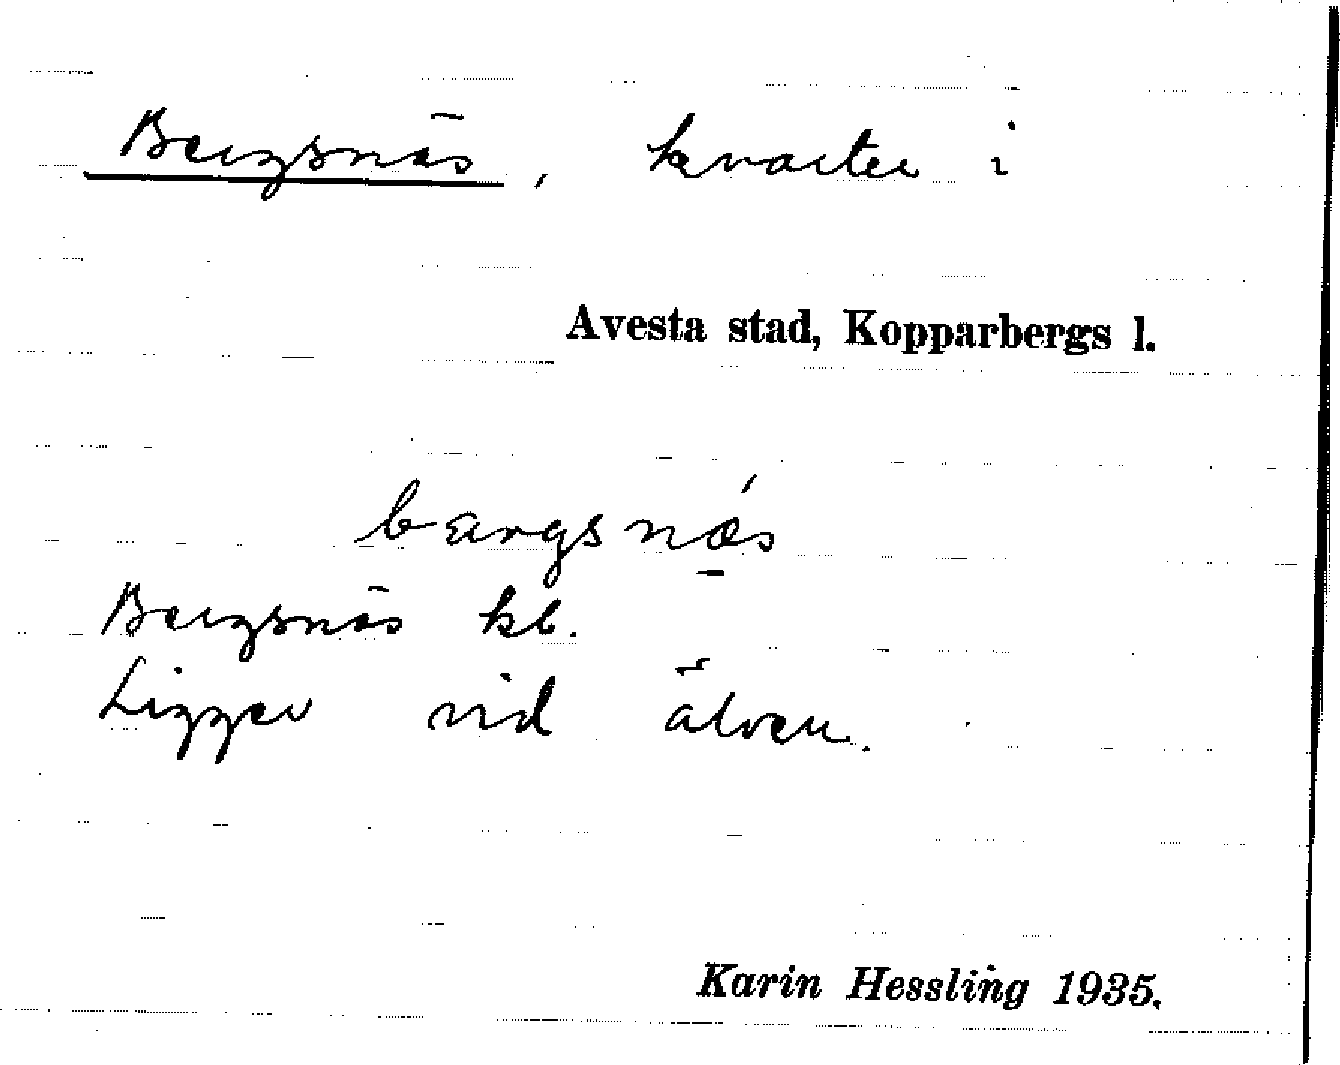 Bergsnäs, kvarter i
Avesta stad, Kopparbergs l.
bargsnǽ̱s
Bergsnäs kb.
Ligger vid älven.
Karin Hessling 1935.